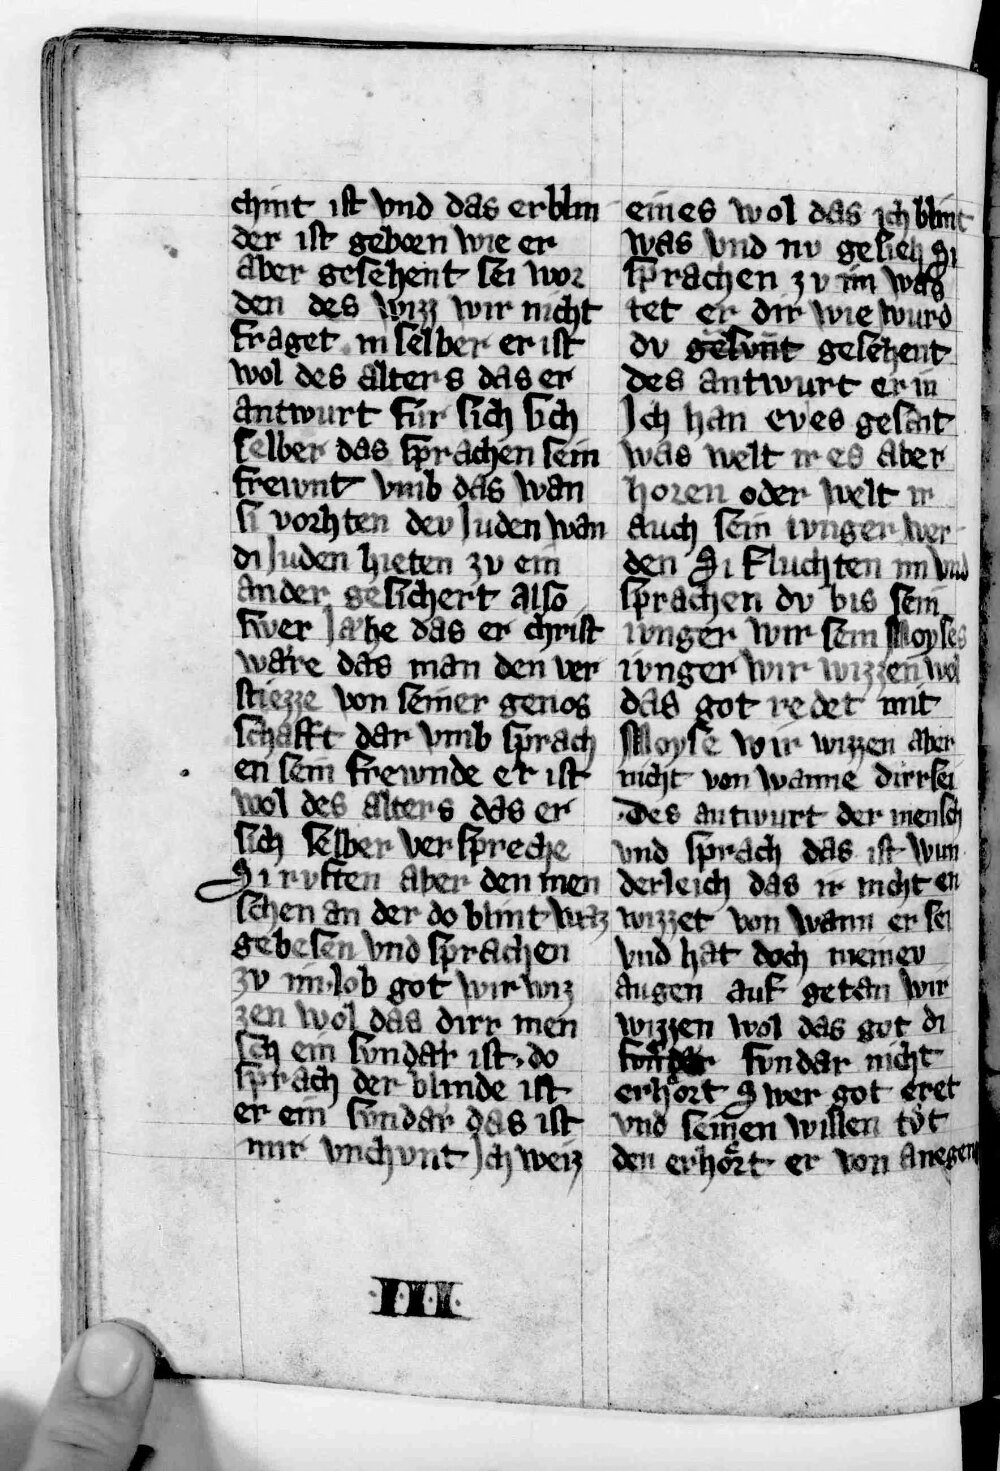 chint ist vnd das er blin
der ist geboren wie er
aber gesehent sei wor
den des wizz wir nicht
fraget in selber er ist
wol des alters das er
antwurt für sich sich
selber das sprachen sein
frewnt vmb das wan
si vorhten dev Juden wan
di Juden hieten zv ein
ander gesichert also
swer Jahe das er christ
wåre das man den ver
stiezze von seiner genos
schafft dar vmb sprach
en sein frewnde er ist
wol des alters das er
sich selber verspreche
Si ruften aber den men
schen an der do blint waz
gebesen vnd sprachen
zv im·lob got wir wiz
zen wol das dirr men
sch ein sundar ist·do
sprach der blinde ist
er ein sundar das ist
mir vnchunt Ich weiz
eines wol das ich blint
was vnd nv gesieh Si
sprachen zv im was
tet er dir wie wurd
dv gesunt gesehent
des antwurt er in
Ich han eves gesait
was welt ir es aber
horen oder welt ir
auch sein iunger wer
den Si fluchten im vnd
sprachen dv bis sein
iunger wir sein Moyses
iunger wir wizzen wol
das got redet mit
Moyse wir wizzen aber
nicht von wanne dirr sei
·Des antwurt der mensch
vnd sprach das ist wun
derleich das ir nicht en
wizzet von wann er sei
vnd hat doch meinev
augen auf getan wir
wizzen wol das got di
sundar nicht
erhört Swer got eret
vnd seinen willen tůt
den erhört er von anegeng
·III·